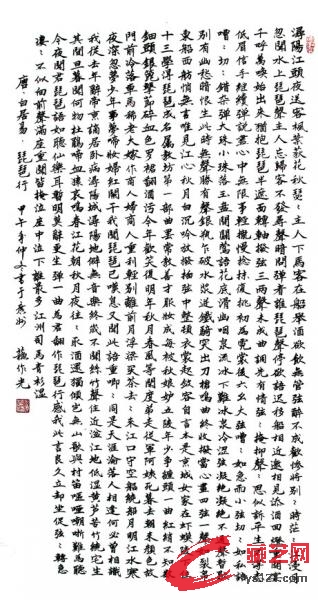 潯陽江頭夜送客楓葉荻花秋瑟:主人下馬客在船舉酒欲飲無管弦醉不成歡慘將別:時茫:江浸月
忽聞水上琵琶聲主人忘歸客不發尋聲暗問彈者誰琵琶聲停欲語遲移船相近邀相見添酒回燈重開宴
千呼萬喚始出來猶抱琵琶半遮面轉軸撥弦三兩聲未成曲調先有情弦:掩抑聲:思似訴平生不得志
低眉信手續續彈說盡心中無限事輕攏慢撚抹復挑初為霓裳後六幺大弦嘈:如急雨小弦切:如私語嘈:
切:錯雜彈大珠小珠落玉盤間關鶯語花底滑幽咽泉流冰下難冰泉冷澀弦凝絕凝絕不通聲暫歇
別有幽愁暗恨生此時無聲勝有聲銀瓶乍破水漿迸鐵騎突出刀槍鳴曲終收撥當心畫四弦一聲如裂帛
東船西舫悄無言唯見江心秋月白沉吟放撥插弦中整頓衣裳起斂容自言本是京城女家在蝦蟆陵下住
十三學得琵琶成名屬教坊第一部曲罷常教善才服妝成每被秋娘妒五陵年少爭纏頭一曲紅綃不知數
鈿頭銀篦擊節碎血色羅裙翻酒污今年歡笑復明年秋月春風等閒度弟走從軍阿姨死暮去朝來顏色故
門前冷落車馬稀老大嫁作商人婦商人重利輕別離前月浮梁買茶去:來江口守空船繞船月明江水寒
夜深忽夢少年事夢啼妝淚紅闌干我聞琵琶已嘆息又聞此語重唧:同是天涯淪落人相逢何必曾相識
我從去年辭帝京謫居臥病潯陽城潯陽地僻無音樂終歲不聞絲竹聲住近湓江地低濕黃蘆苦竹繞宅生
其間旦暮聞何物杜鵑啼血猿哀鳴春江花朝秋月夜往:取酒還獨傾豈無山歌與村笛嘔啞嘲哳難為聽
今夜聞君琵琶語如聽仙樂耳暫明莫辭更坐彈一曲為君翻作琵琶行感我此言良久立却坐促弦:轉急
淒:不似向前聲滿座重聞皆掩泣座中泣下誰最多江州司馬青衫濕
唐·白居易·琵琶行 甲午年仲冬書于 蘇作光
藏艺网
yszlzx.com